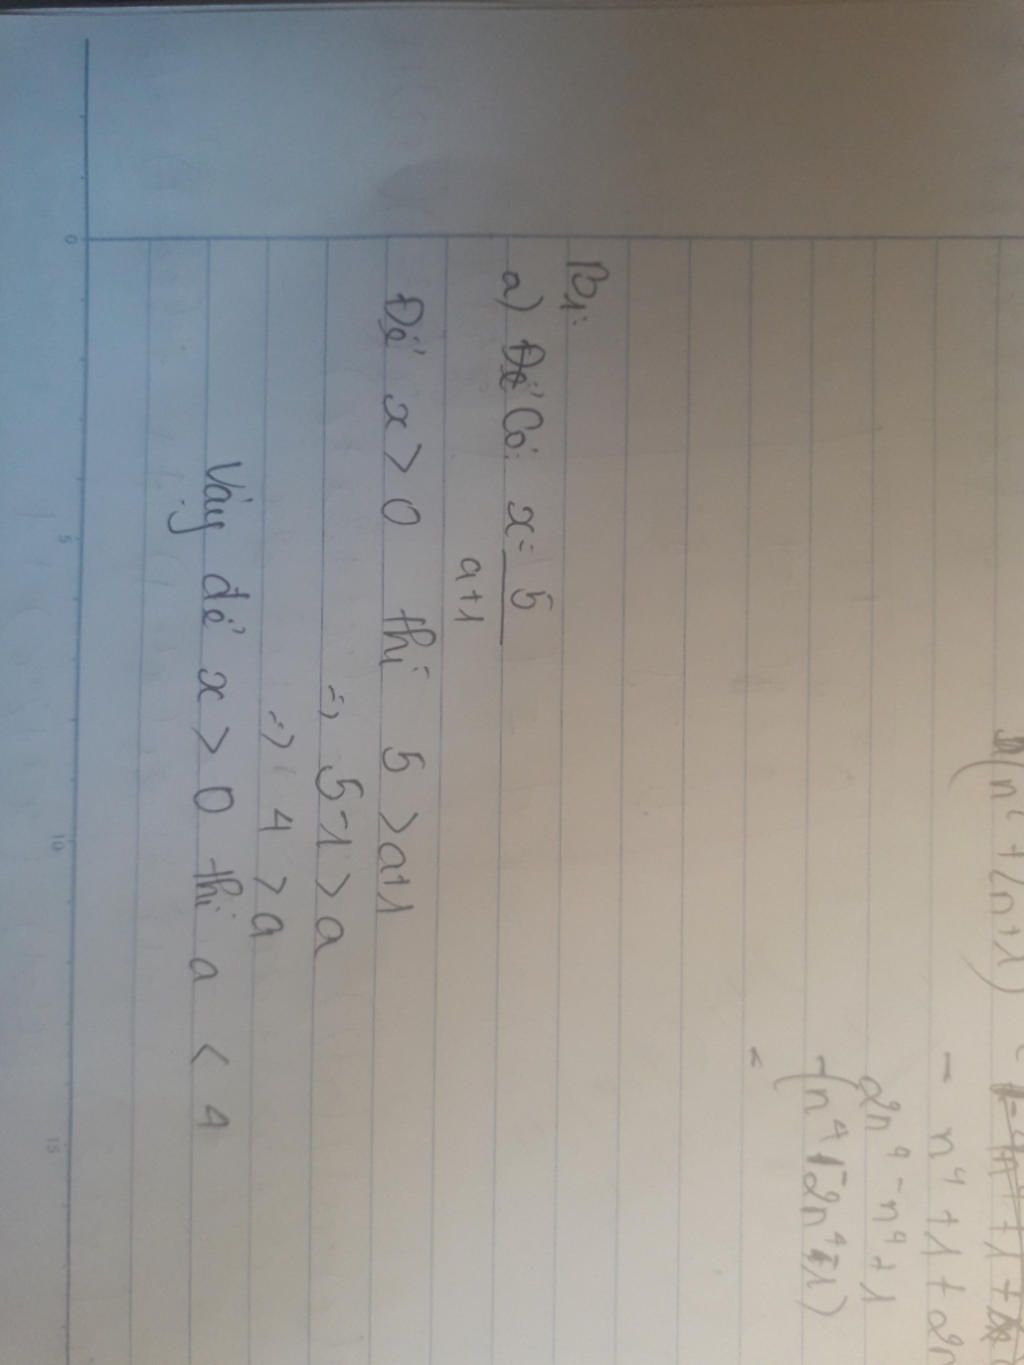 B1:
a) Để Có: x = 5
a+1
Để x > 0 thì 5 > a+1
=> 5-1 > a
=> 4 > a
Vậy để x > 0 thì a < 4
(n² + 2n + 1)
- n⁴ + 1 + 2n
2n⁴ - n⁴ + 1
=
0
5
10
15